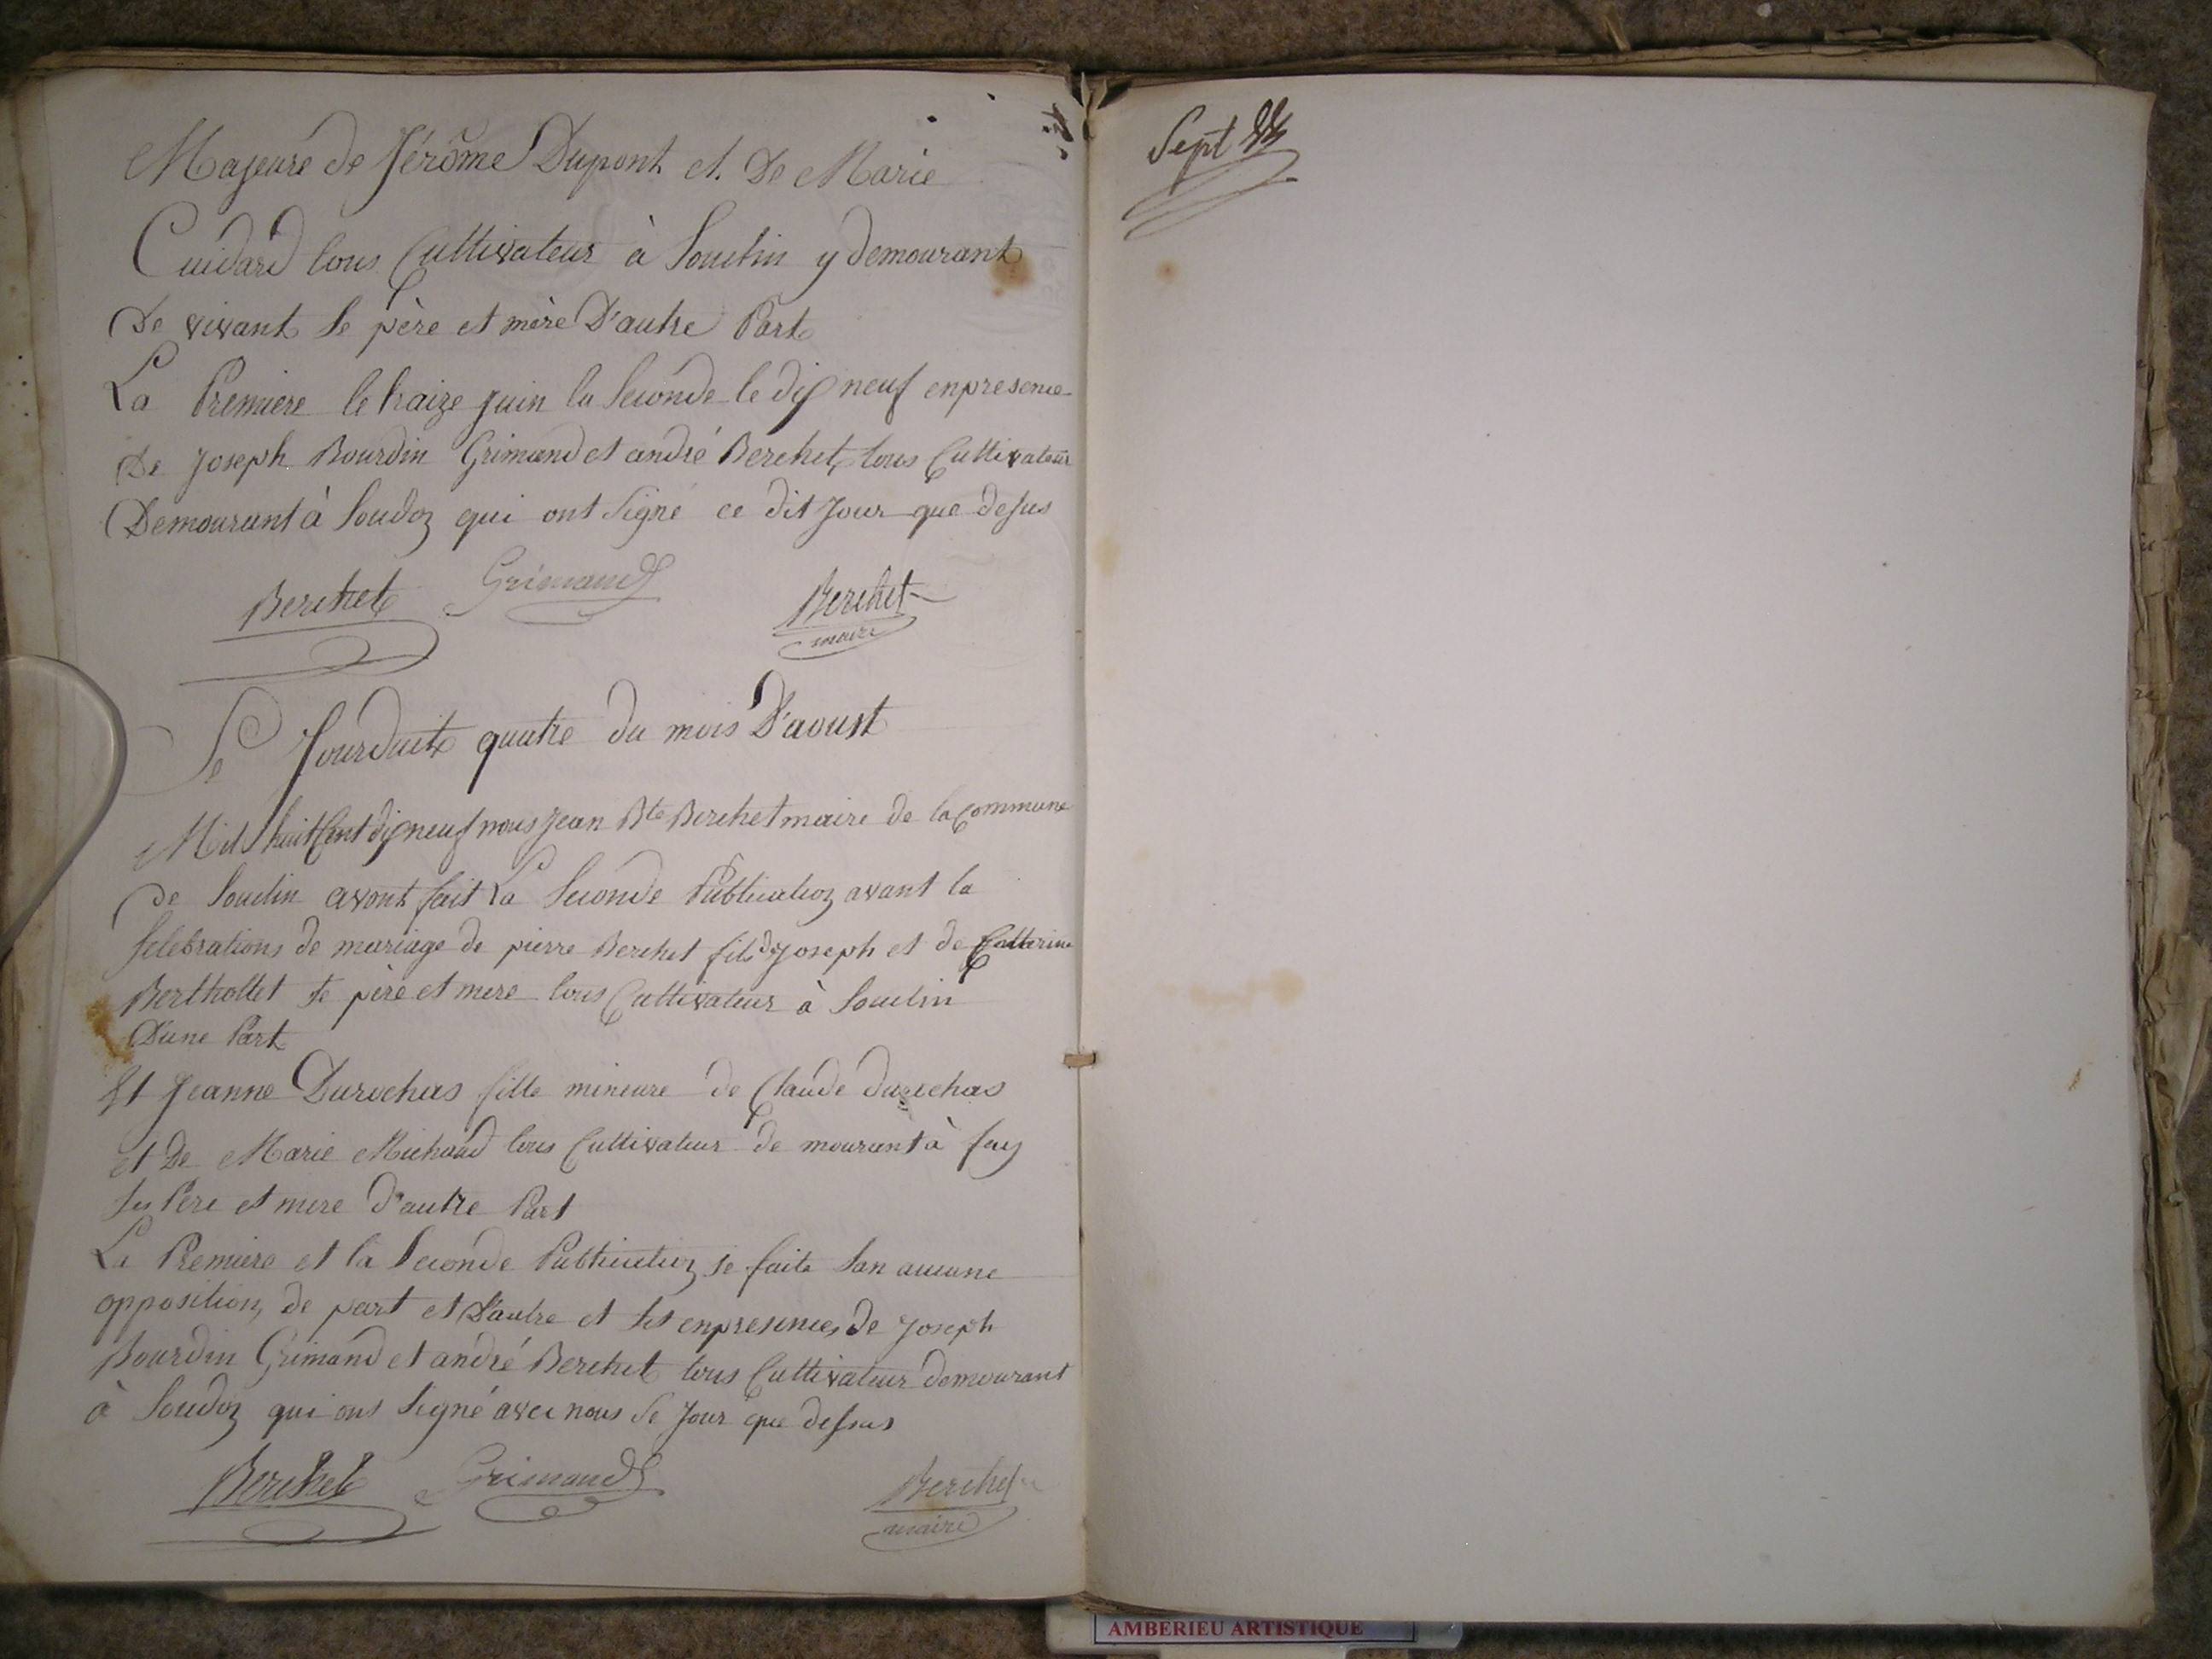 Majeure de Jérôme Dupont et De Marie
Cuidard tous Cultivateur à Souclin y demourant
De vivant se père et mère D'autre Part
La Premiere le traize juin la Seconde le dix neuf enpresence
De Joseph Bourdin Grimand et andré Berchet tous Cultivateur
Demourant à Soudon qui ont Signé ce dit Jour que desus
Berchet Grimand Berchet
maire
Le Jourduit quatre du mois D'aoust
Mil huit Cent dix neuf nous Jean Bte Berchet maire de la Commune
De Souclin avont fait La Seconde Publication avant la
Selebrations de mariage de pierre Berchet fils de Joseph et de Catterine
Berthollet se père et mere tous Cultivateur à Souclin
D'une Part
Et Jeanne Durochas fille mineure de Claude durochas
et De Marie Michaud tous Cultivateur de mourant à fay
ses Pere et mere d'autre Part
La Premiere et la Seconde Publication se faite San aucune
opposition de part et D'autre et set enpresences de Joseph
Bourdin Grimand et andré Berchet tous Cultivateur demourant
à Soudon qui ons Signé avec nous Se Jour que dessus
Berchet Grimand Berchet
maire
Sept
AMBERIEU ARTISTIQUE